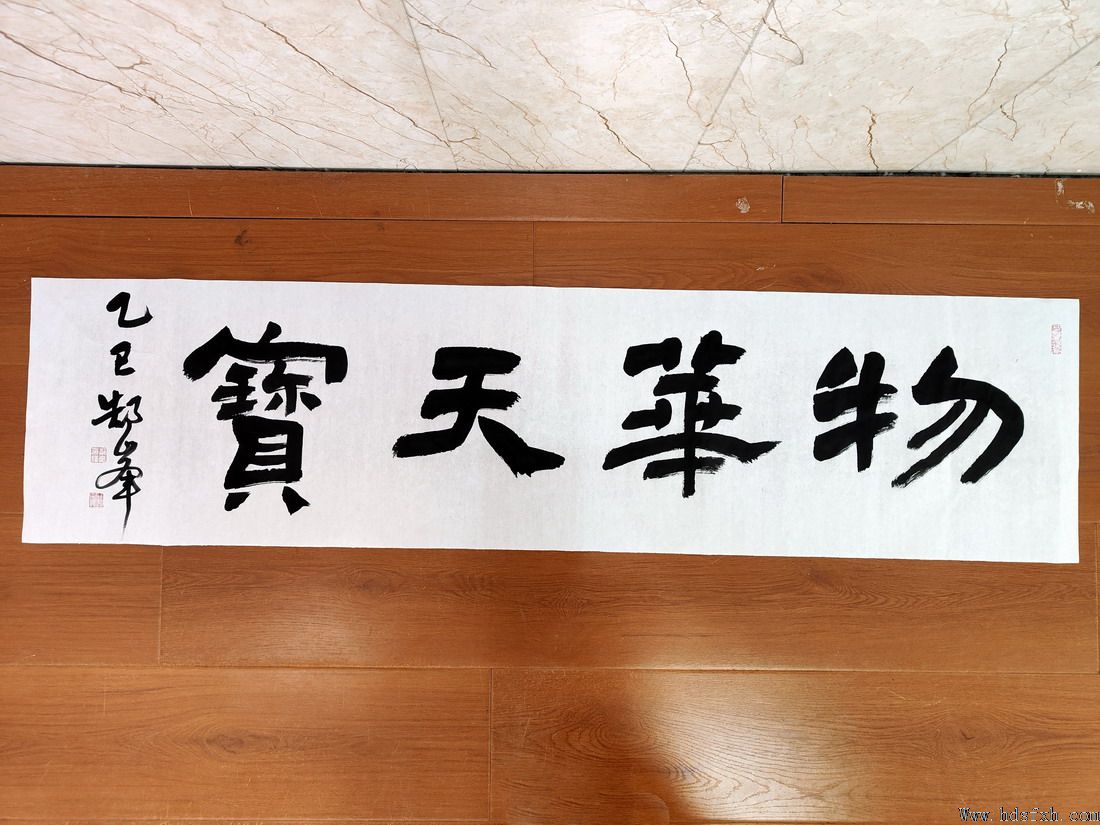 物華天寶
乙巳郝峯
Www.hdsfxh.com